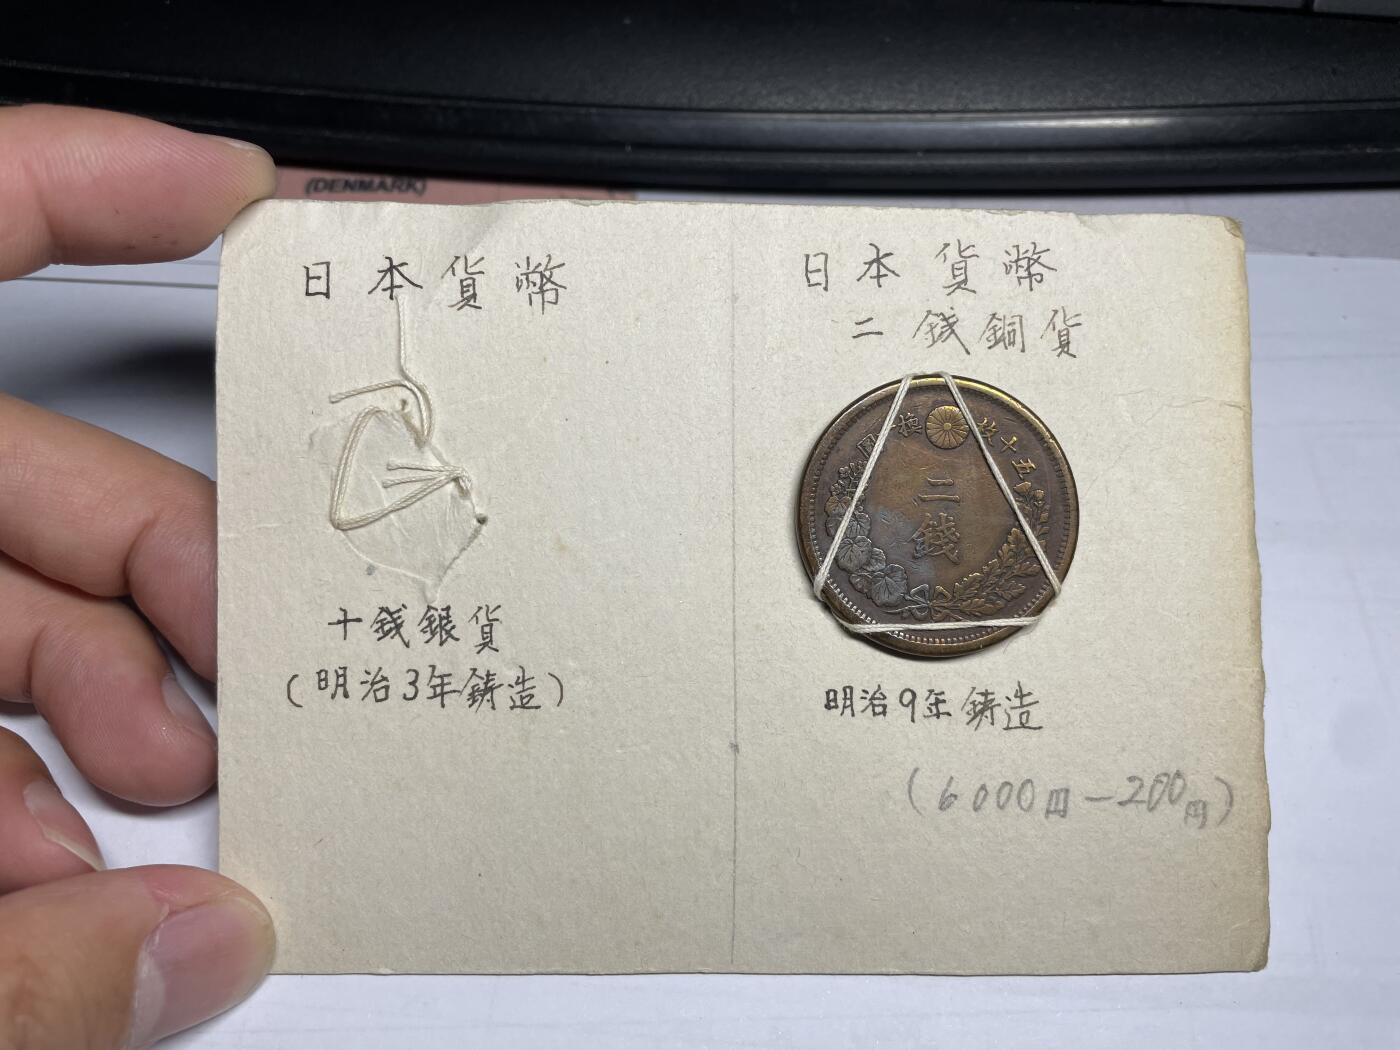 (DENMARK)
日本貨幣
十銭銀貨
(明治3年鋳造)
日本貨幣
二銭銅貨
五十枚換圓
二銭
明治9年鋳造
(6000円－200円)